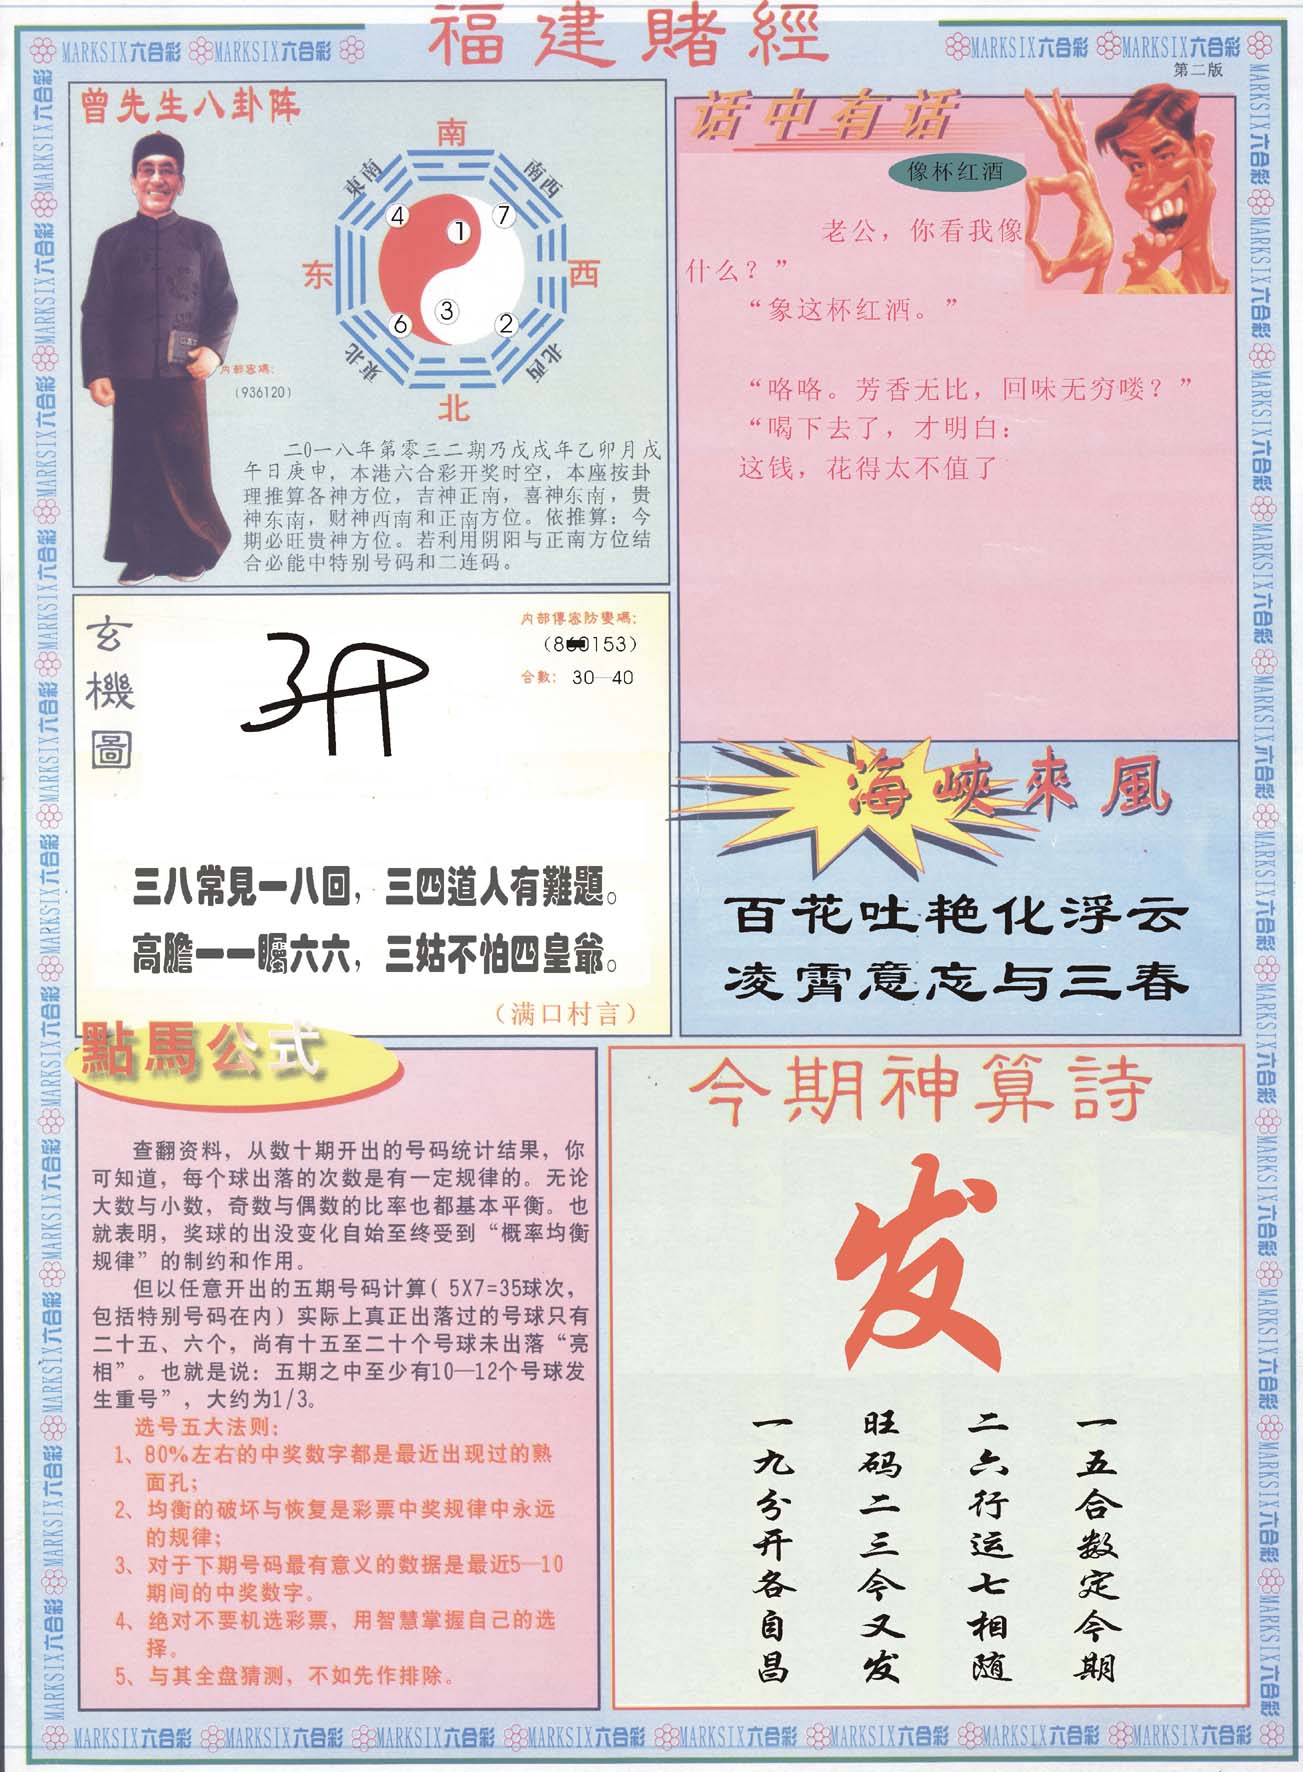 福建賭經
MARKSIX六合彩 MARKSIX六合彩
MARKSIX六合彩 MARKSIX六合彩
第二版
曾先生八卦阵
南
東南
南西
4
1
7
东
西
6
3
2
東北
北西
北
内部密碼:
(936120)
二0一八年第零三二期乃戊戌年乙卯月戊
午日庚申，本港六合彩开奖时空，本座按卦
理推算各神方位，吉神正南，喜神东南，贵
神东南，财神西南和正南方位。依推算：今
期必旺贵神方位。若利用阴阳与正南方位结
合必能中特别号码和二连码。
话中有话
像杯红酒
老公，你看我像
什么？”
“象这杯红酒。”
“咯咯。芳香无比，回味无穷喽？”
“喝下去了，才明白：
这钱，花得太不值了
玄機圖
内部傳密防變碼:
合數: 30—40
三八常見一八回，三四道人有難題。
高膽一一矚六六，三姑不怕四皇爺。
（满口村言）
海峽來風
百花吐艳化浮云
凌霄意忘与三春
點馬公式
查翻资料，从数十期开出的号码统计结果，你
可知道，每个球出落的次数是有一定规律的。无论
大数与小数，奇数与偶数的比率也都基本平衡。也
就表明，奖球的出没变化自始至终受到“概率均衡
规律”的制约和作用。
但以任意开出的五期号码计算( 5X7=35球次，
包括特别号码在内) 实际上真正出落过的号球只有
二十五、六个，尚有十五至二十个号球未出落“亮
相”。也就是说：五期之中至少有10—12个号球发
生重号”，大约为1/3。
选号五大法则：
1、80%左右的中奖数字都是最近出现过的熟
面孔；
2、均衡的破坏与恢复是彩票中奖规律中永远
的规律；
3、对于下期号码最有意义的数据是最近5—10
期间的中奖数字。
4、绝对不要机选彩票，用智慧掌握自己的选
择。
5、与其全盘猜测，不如先作排除。
今期神算詩
发
一五合数定今期
二六行运七相随
旺码二三今又发
一九分开各自昌
MARKSIX六合彩 MARKSIX六合彩 MARKSIX六合彩 MARKSIX六合彩 MARKSIX六合彩 MARKSIX六合彩 MARKSIX六合彩 MARKSIX六合彩